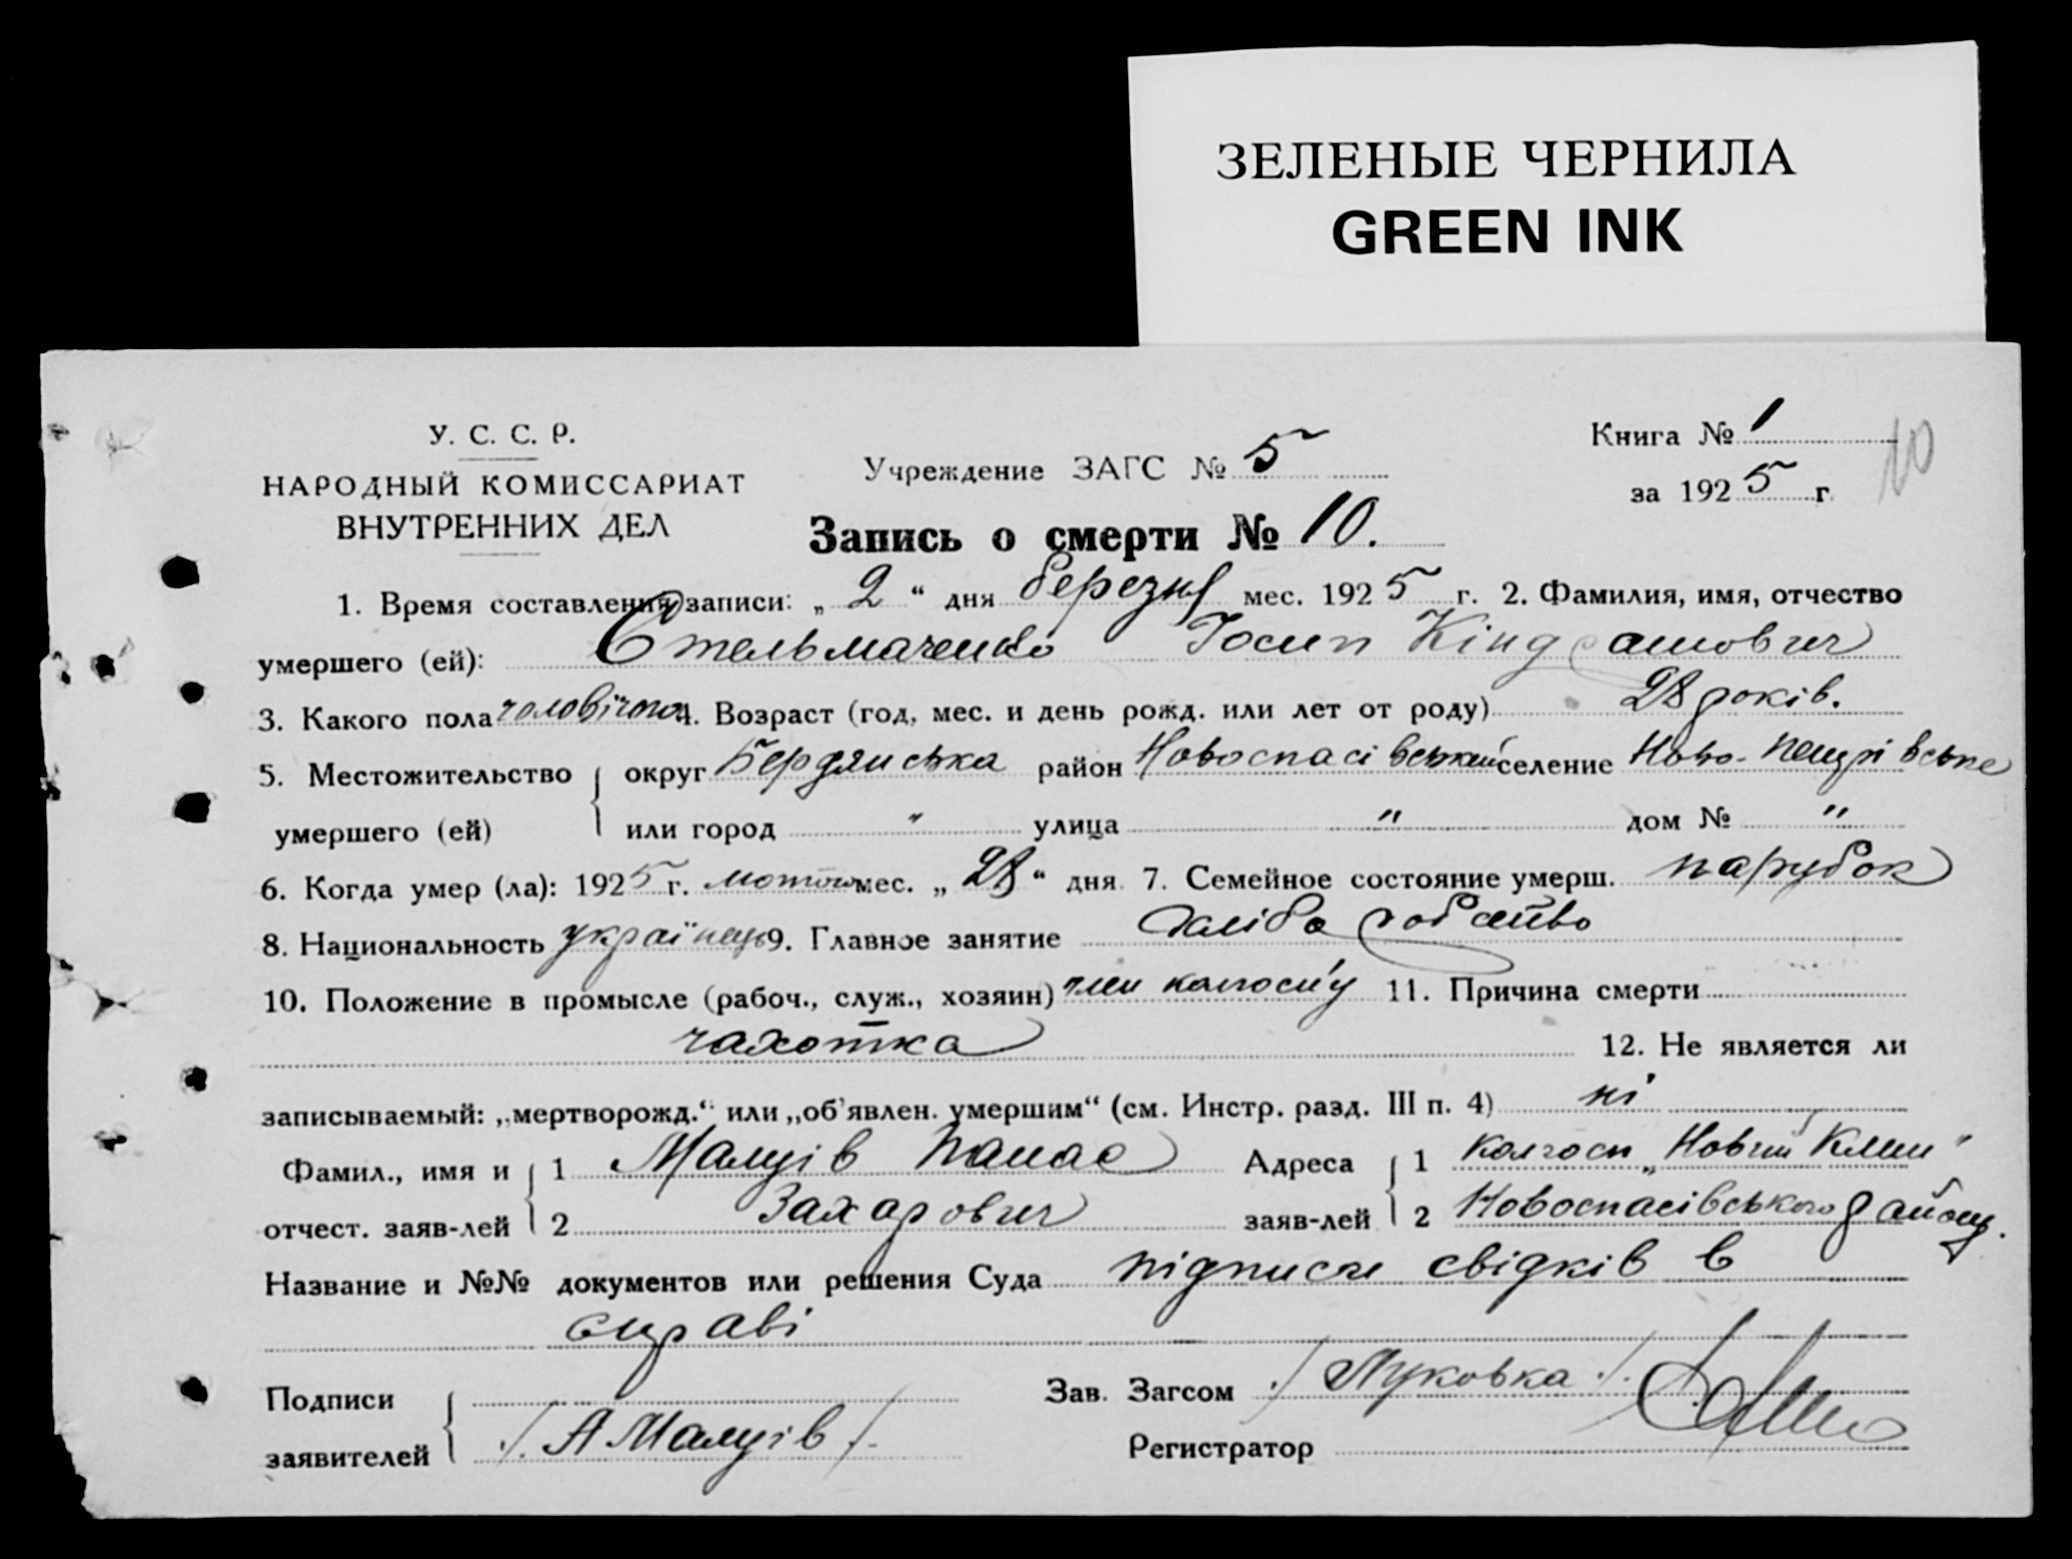 ЗЕЛЕНЫЕ ЧЕРНИЛА
GREEN INK
У. С. С. Р.
НАРОДНЫЙ КОМИССАРИАТ
ВНУТРЕННИХ ДЕЛ
Учреждение ЗАГС № 5
Книга № 1
за 1925 г.
10
Запись о смерти № 10.
1. Время составления записи: „ 2 “ дня березня мес. 1925 г. 2. Фамилия, имя, отчество
умершего (ей): Стельмаченко Йосип
3. Какого пола чоловічого 4. Возраст (год, мес. и день рожд. или лет от роду) 28 років.
5. Местожительство умершего (ей) { округ Бердянська район Новоспасівський селение Ново-Петрівське
или город " улица " дом № "
6. Когда умер (ла): 1925 г. лютого мес. „ 28 “ дня 7. Семейное состояние умерш. парубок
8. Национальность українець 9. Главное занятие
10. Положение в промысле (рабоч., служ., хозяин) член колгоспу 11. Причина смерти
чахотка 12. Не является ли
записываемый: „мертворожд.“ или „об'явлен. умершим“ (см. Инстр. разд. III п. 4) ні
Фамил., имя и { 1 Малуів Панас Адреса { 1 Колгосп „Новий
отчест. заяв-лей 2 Захарович заяв-лей 2 Новоспасівського району.
Название и №№ документов или решения Суда підписи свідків в
справі
Подписи
заявителей { /. А Малуів /.
Зав. Загсом ./ Луковка /.
Регистратор